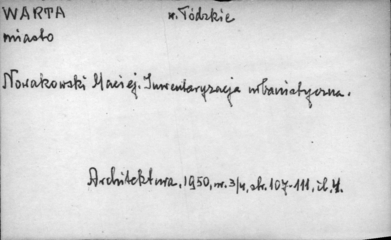 WARTA w. Łódzkie
miasto
Nowakowski Maciej. Inwentaryzacja urbanistyczna.
Architektura, 1950, nr. 3/4, str. 107-111, il. 4.